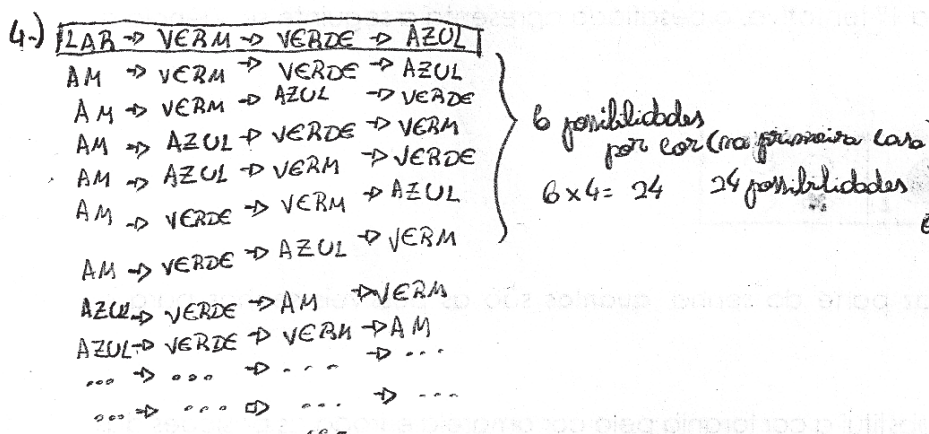 4-) LAR → VERM → VERDE → AZUL
AM → VERM → VERDE → AZUL
AM → VERM → AZUL → VERDE
AM → AZUL → VERDE → VERM
AM → AZUL → VERM → VERDE
AM → VERDE → VERM → AZUL
AM → VERDE → AZUL → VERM
AZUL → VERDE → AM → VERM
AZUL → VERDE → VERM → AM
... → ... → ... → ...
... → ... → ... → ...
6 possibilidades
por cor (na primeira casa
6 x 4 = 24 24 possibilidades